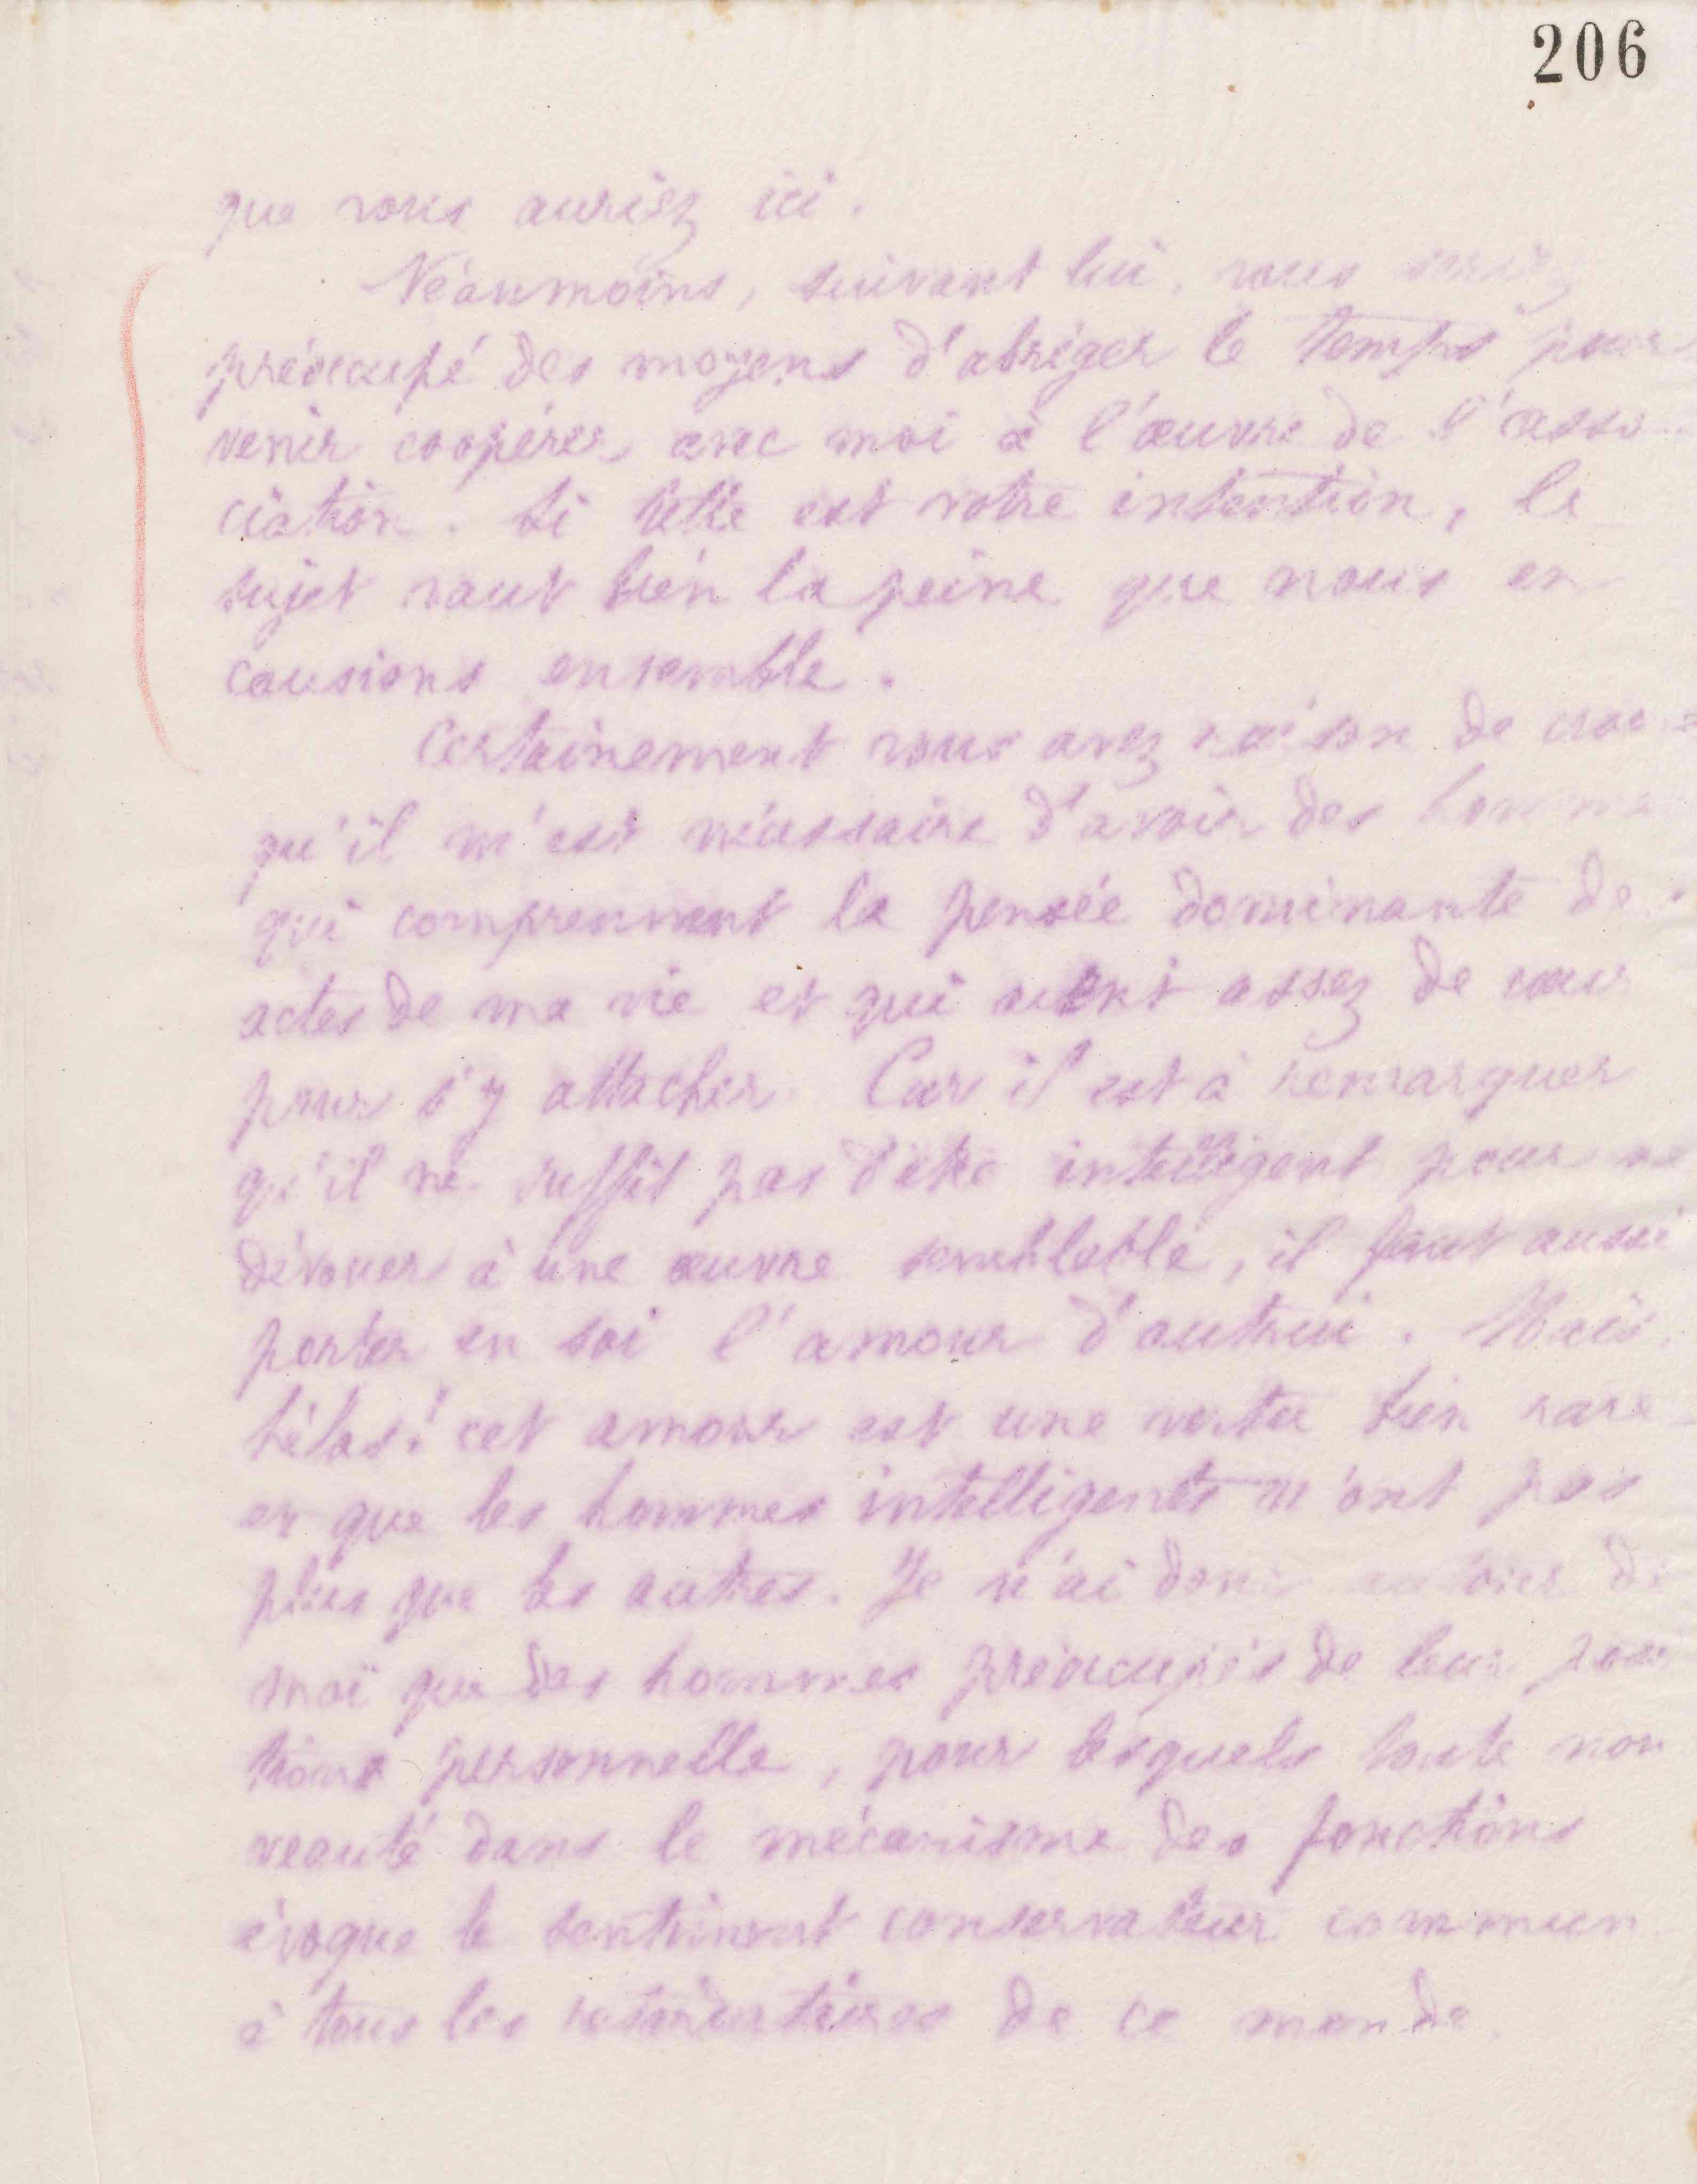 206
que vous auriez ici.
Néanmoins, suivant lui, vous seriez
préoccupé des moyens d'abréger le temps pour
venir coopérer avec moi à l'œuvre de l'asso-
ciation. Si telle est votre intention, le
sujet vaut bien la peine que nous en
causions ensemble.
Certainement vous avez raison de croire
qu'il m'est nécessaire d'avoir des homme
qui comprennent la pensée dominante des
actes de ma vie et qui aient assez de cœur
pour s'y attacher. Car il est à remarquer
qu'il ne suffit pas d'être intelligent pour se
dévouer à une œuvre semblable, il faut aussi
porter en soi l'amour d'autrui. Mais,
hélas! cet amour est une vertu bien rare
et que les hommes intelligents n'ont pas
plus que les autres. Je n'ai donc autour de
moi que des hommes préoccupés de leur posi
tions personnelle, pour lesquels toute nou
veauté dans le mécanisme des fonctions
évoque le sentiment conservateur commun
à tous les de ce monde.